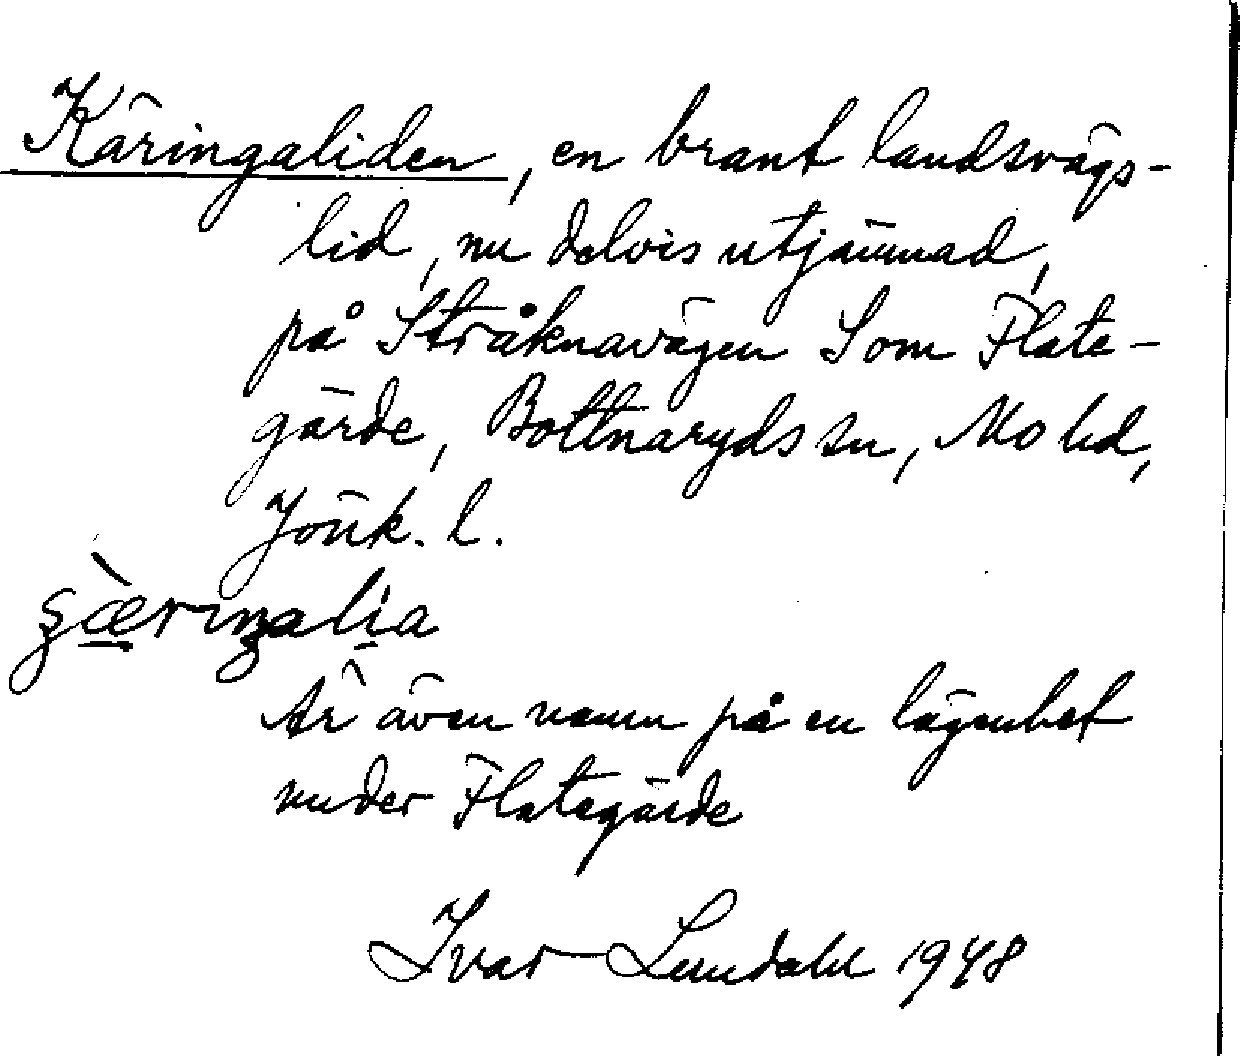 Käringaliden, en brant landsvägs-
lid, nu delvis utjämnad,
på Stråknavägen S om Flate-
gärde, Bottnaryds sn, Mo hd,
Jönk. l.
Är även namn på en lägenhet
under Flategärde
Ivar Lundahl 1948